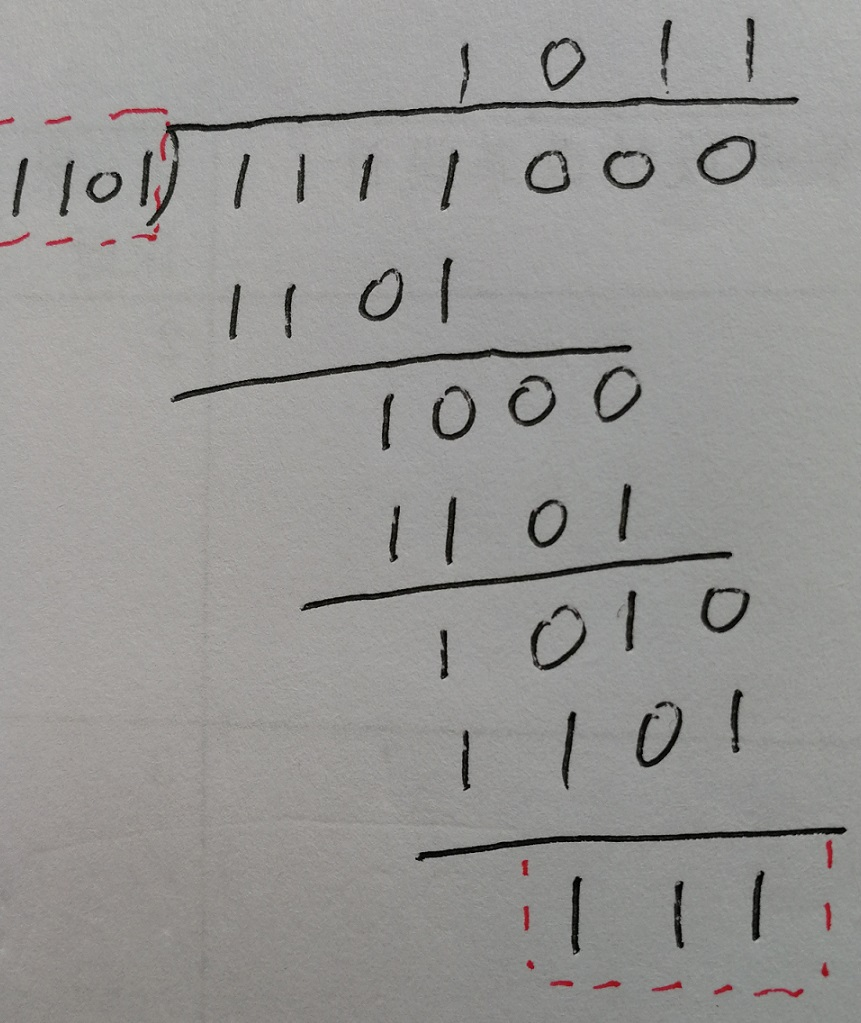 1 0 1 1
1101) 1 1 1 1 0 0 0
1 1 0 1
1 0 0 0
1 1 0 1
1 0 1 0
1 1 0 1
1 1 1